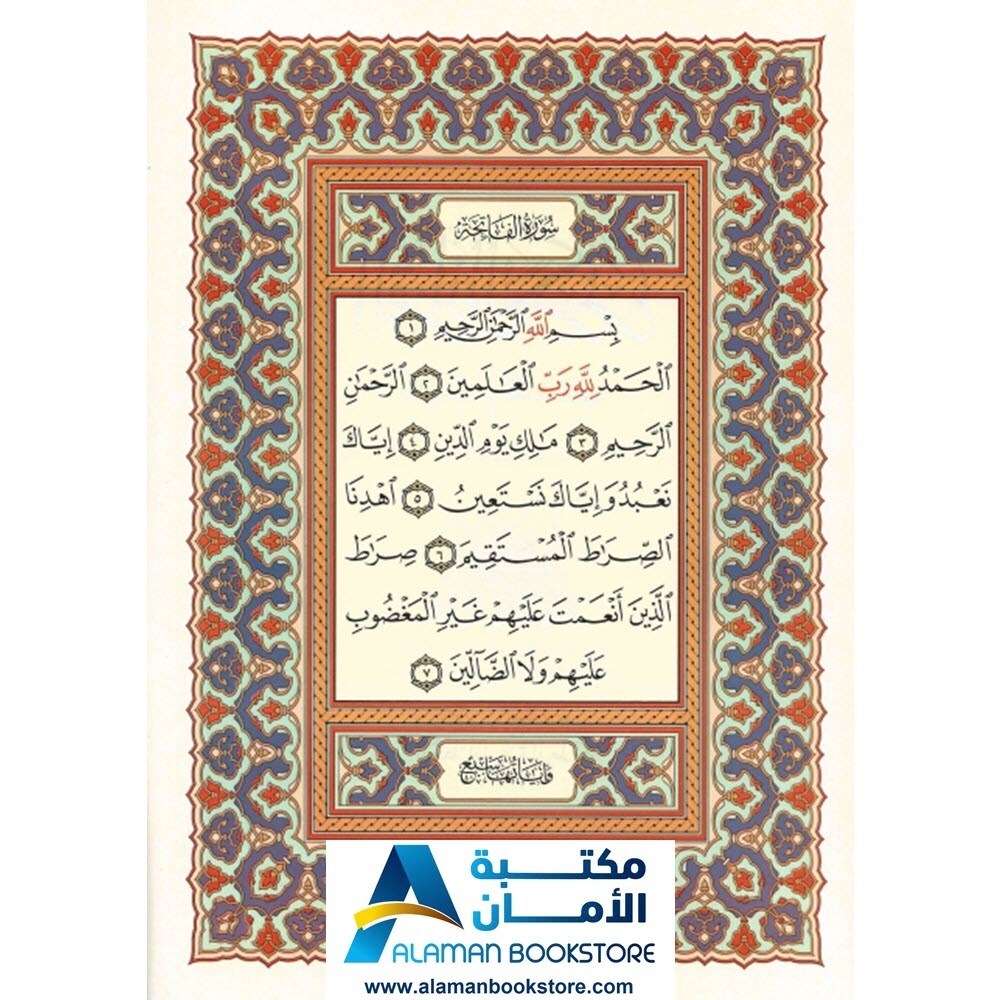 سُورَةُ الفَاتِحَة
بِسْمِ ٱللَّهِ ٱلرَّحْمَٰنِ ٱلرَّحِيمِ ١
ٱلْحَمْدُ لِلَّهِ رَبِّ ٱلْعَٰلَمِينَ ٢ ٱلرَّحْمَٰنِ
ٱلرَّحِيمِ ٣ مَٰلِكِ يَوْمِ ٱلدِّينِ ٤ إِيَّاكَ
نَعْبُدُ وَإِيَّاكَ نَسْتَعِينُ ٥ ٱهْدِنَا
ٱلصِّرَٰطَ ٱلْمُسْتَقِيمَ ٦ صِرَٰطَ
ٱلَّذِينَ أَنْعَمْتَ عَلَيْهِمْ غَيْرِ ٱلْمَغْضُوبِ
عَلَيْهِمْ وَلَا ٱلضَّآلِّينَ ٧
وَآيَاتُهَا سَبْعٌ
مكتبة
الأمان
ALAMAN BOOKSTORE
www.alamanbookstore.com